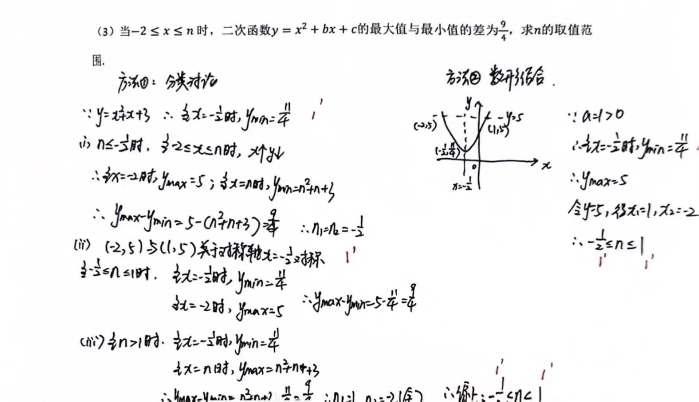 (3) 当-2 ≤ x ≤ n时，二次函数y = x² + bx + c的最大值与最小值的差为9/4，求n的取值范
围.
方法①：分类讨论
∵y=x²+x+3 ∴当x=-1/2时，ymin=11/4 1'
(i) n≤-1/2时，当-2≤x≤n时，x↑y↓
∴当x=-2时，ymax=5；当x=n时，ymin=n²+n+3
∴ymax-ymin=5-(n²+n+3)=9/4 ∴n₁=n₂=-1/2
(ii) (-2,5)与(1,5)关于对称轴x=-1/2对称 1'
当-1/2≤n≤1时，当x=-1/2时，ymin=11/4
当x=-2时，ymax=5 ∴ymax-ymin=5-11/4=9/4
(iii) 当n>1时，当x=-1/2时，ymin=11/4
当x=n时，ymax=n²+n+3
∴ymax-ymin=n²+n+3-11/4=9/4 ∴n₁=1, n₂=-2(舍)
∴综上：-1/2≤n≤1
1' 1'
方法② 数形结合.
y
y=5
(-2,5)
(1,5)
(-1/2,11/4)
0
x
x=-1/2
∵a=1>0
∴当x=-1/2时，ymin=11/4
∴ymax=5
令y=5，得x₁=1，x₂=-2
∴-1/2≤n≤1
1' 1'